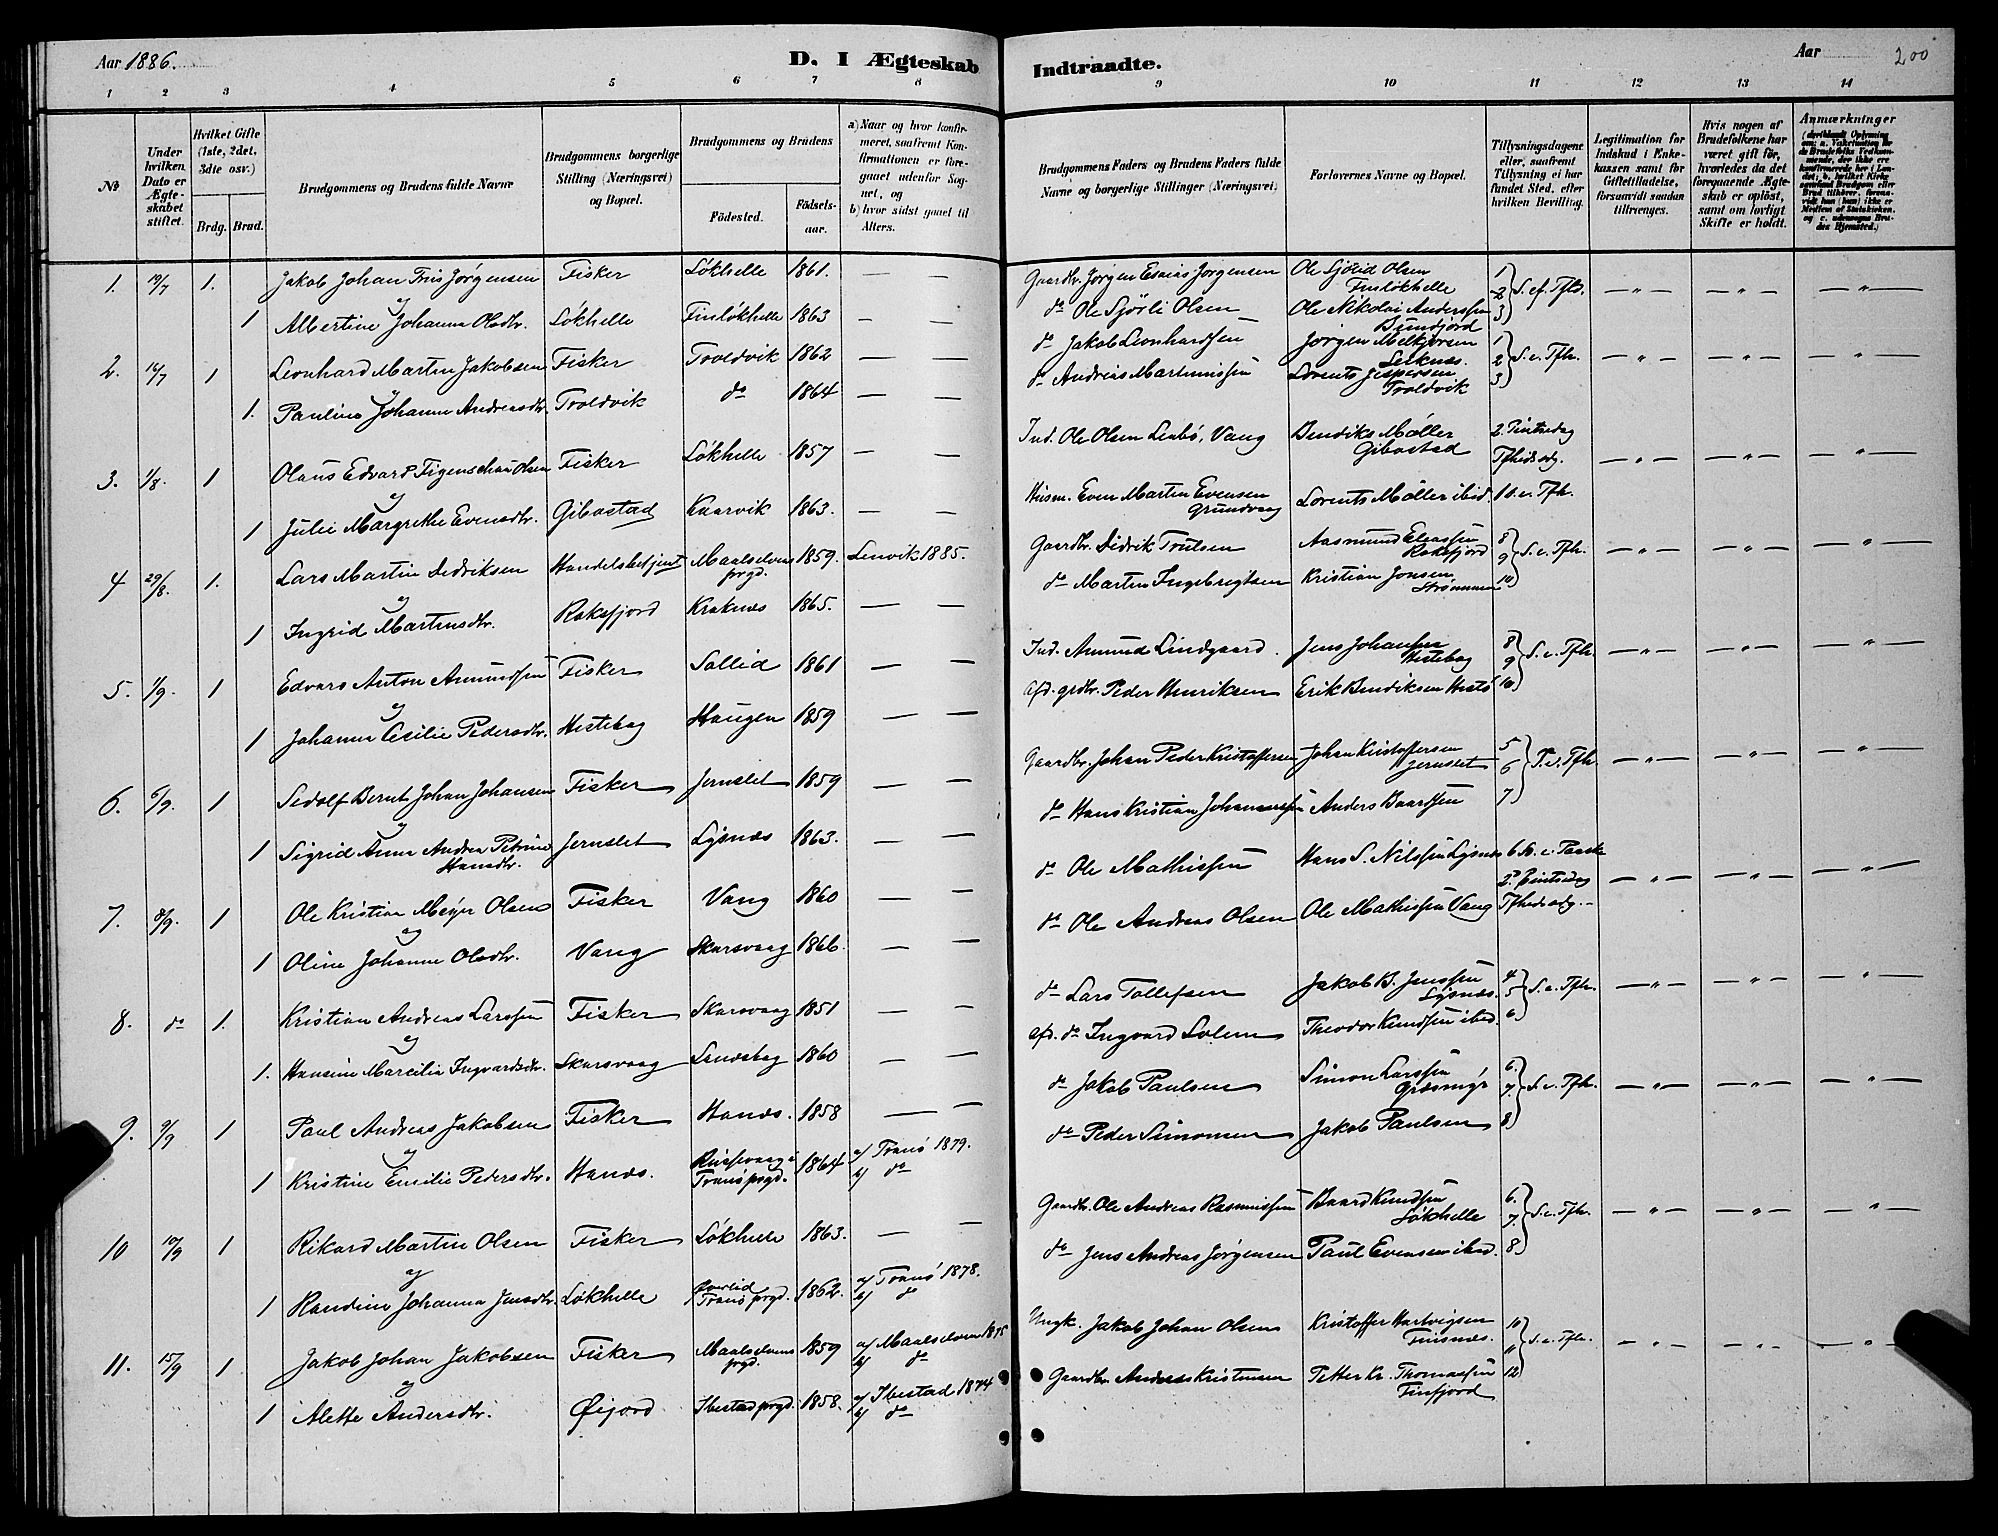 Aar 1886. D. I Ægteskab Indtraadte. Aar 200
1 2 3 4 5 6 7 8 9 10 11 12 13 14
№
Under hvilken Dato er Ægteskabet stiftet.
Hvilket Gifte (1ste, 2det. 3dte osv.)
Brdg. Brud.
Brudgommens og Brudens fulde Navne
Brudgommens borgerlige Stilling (Næringsvei) og Bopæl.
Brudgommens og Brudens
Födested. Födselsaar.
a) Naar og hvor konfirmeret, saafremt Konfirmationen er foregaaet udenfor Sognet, og
b) hvor sidst gaaet til Alters.
Brudgommens Faders og Brudens Faders fulde Navne og borgerlige Stillinger (Næringsvei)
Forlovernes Navne og Bopæl.
Tillysningsdagene eller, saafremt Tillysning ei har fundet Sted, efter hvilken Bevilling.
Legitimation for Indskud i Enkekassen samt for Giftetilladelse, forsaavidt saadan tiltrænges.
Hvis nogen af Brudefolkene har været gift för, hvorledes da det foregaaende Ægteskab er oplöst, samt om lovligt Skifte er holdt.
Anmærkninger
1. 19/7 1. Jakob Johan Friis Jørgensen Fisker Løkhelle 1861. — — Gaardbr. Jørgen Esaias Jørgensen Ole Sjölid Olsen Finløkhelle 1 2 3 S. ef. Tfh. — " — — " — — " —
og
1 Albertine Johanna Olsdtr. Løkhelle Finløkhelle 1863 — — do Ole Sjörli Olsen Ole Nikolai Anderssen
2. 16/7 1 Leonhard Martin Jakobsen Fisker Troldvik 1862 — — do Jakob Leonhardsen Jørgen Melkjorsen Leiknes. 1 2 3 S. e. Tfh. — " — — " — — " —
og
1. Pauline Johanna Andreasdtr. Troldvik do 1864 — — do Andreas Martinussen Lorents Jespersen Troldvik
3. 1/8. 1 Olaus Edvard Figenschau Olsen Fisker Løkhelle 1857 — — Ind. Ole Olsen Lenbö, Vang Bendiks Møller Gibostad 2. Pintsedag Tfheds sdg. — " — — " — — " —
og
1 Julie Margrethe Evensdtr. Gibostad Kaarvik 1863. — — Husm. Even Martin Evensen Grundvaag Lorents Møller ibid. 1 S. e. Tfh.
4 29/8. 1. Lars Martin Dedriksen Handelsbetjent Maalselvens prgd. 1859. Lenvik 1885. Gaardbr. Didrik Troelsen Aasmund Eliassen Roksfjord 8 9 10 S. e. Tfh. — " — — " — — " —
og
1 Ingrid Martinsdtr. Roksfjord Kraknes 1865. — — do Martin Ingebrigtsen Kristian Jonsen Strømmen
5. 1/9. 1 Edvard Anton Amundsen Fisker Sollid 1861 — — Ind. Amund Lindgaard. Jens Johansen Hestebag 8 9 10 S. e. Tfh. — " — — " — — " —
og
1 Johanna Cecilie Pedersdtr. Hestebag Haugen 1859 — — Afd. grdbr. Peder Henriksen Erik Bendiksen Hestö
6. 5/9. 1 Sedolf Bernt Johan Johansen Fisker Jernslet 1859 — — Gaardbr. Johan Peder Kristoffersen Johan Kristoffersen Jernslet 5 6 7 S. e. Tfh. — " — — " — — " —
og
1 Sigrid Anna Andrea Petrine Hansdtr. Jernslet Lysnes 1863. — — do Hans Kristian Johannessen Anders Baardsen
7. 8/9. 1 Ole Kristian Meyer Olsen Fisker Vang 1860 — — do Ole Mathissen Hans S. Nilssen Lysnes 6 S. e. Paaske 2. Pintsedag Tfheds sdg. — " — — " — — " —
og
1 Oline Johanna Olsdtr. Vang Skarsvaag 1866. — — do Ole Andreas Olsen Ole Mathissen Vang
8. do 1. Kristian Andreas Larssen Fisker Skarsvaag 1851 — — do Lars Tollefsen Jakob B. Jenssen Lysnes. 4 5 6 S. e. Tfh. — " — — " — — " —
og
1. Hansine Marcilia Ingvardsdtr. Skarsvaag Sandsbag 1860 — — Afd. do Ingvard Solem Theodor Knudsen ibid.
9. 9/9 1 Paul Andreas Jakobsen Fisker Hanæs. 1858 — — do Jakob Paulsen Simon Larssen Græsmyr 6. 7. 8 S. e. Tfh. — " — — " — — " —
og
1 Kristine Emilie Pedersdtr. Hanæs. Tranö prgd. 1864 a/ Tranö 1879. b/ do do Peder Simonsen Jakob Paulsen
10 10/9 1 Rikard Martin Olsen Fisker Løkhelle 1863. — — Gaardbr. Ole Andreas Rasmussen Baard Knudsen Løkhelle 6. 7. 8 S. e. Tfh. — " — — " — — " —
og
1 Randine Johanna Jensdtr. Løkhelle Tranö prgd. 1862. a/ Tranö 1878. b/ do do Jens Andreas Jørgensen Paul Evensen ibid.
11. 15/9 1 Jakob Johan Jakobsen Fisker Maalselvens prgd. 1859 a/ Maalselven 1875 b/ do Ungk. Jakob Johan Olsen Kristoffer Hartvigsen Finsnæs. 10 11 12 S. e. Tfh. — " — — " — — " —
og
1 Alette Andersdtr. Øijord Ibestad prgd. 1858. a/ Ibestad 1874 b/ do Gaardbr. Anders Kristensen Petter Kr. Thomassen Finfjord